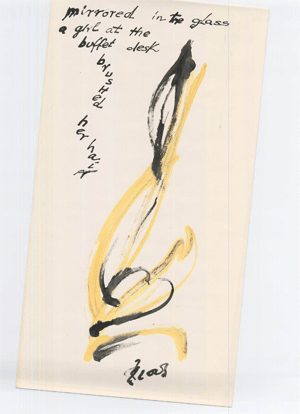 mirrored in the glass
a girl at the
buffet desk
brushed
her hair